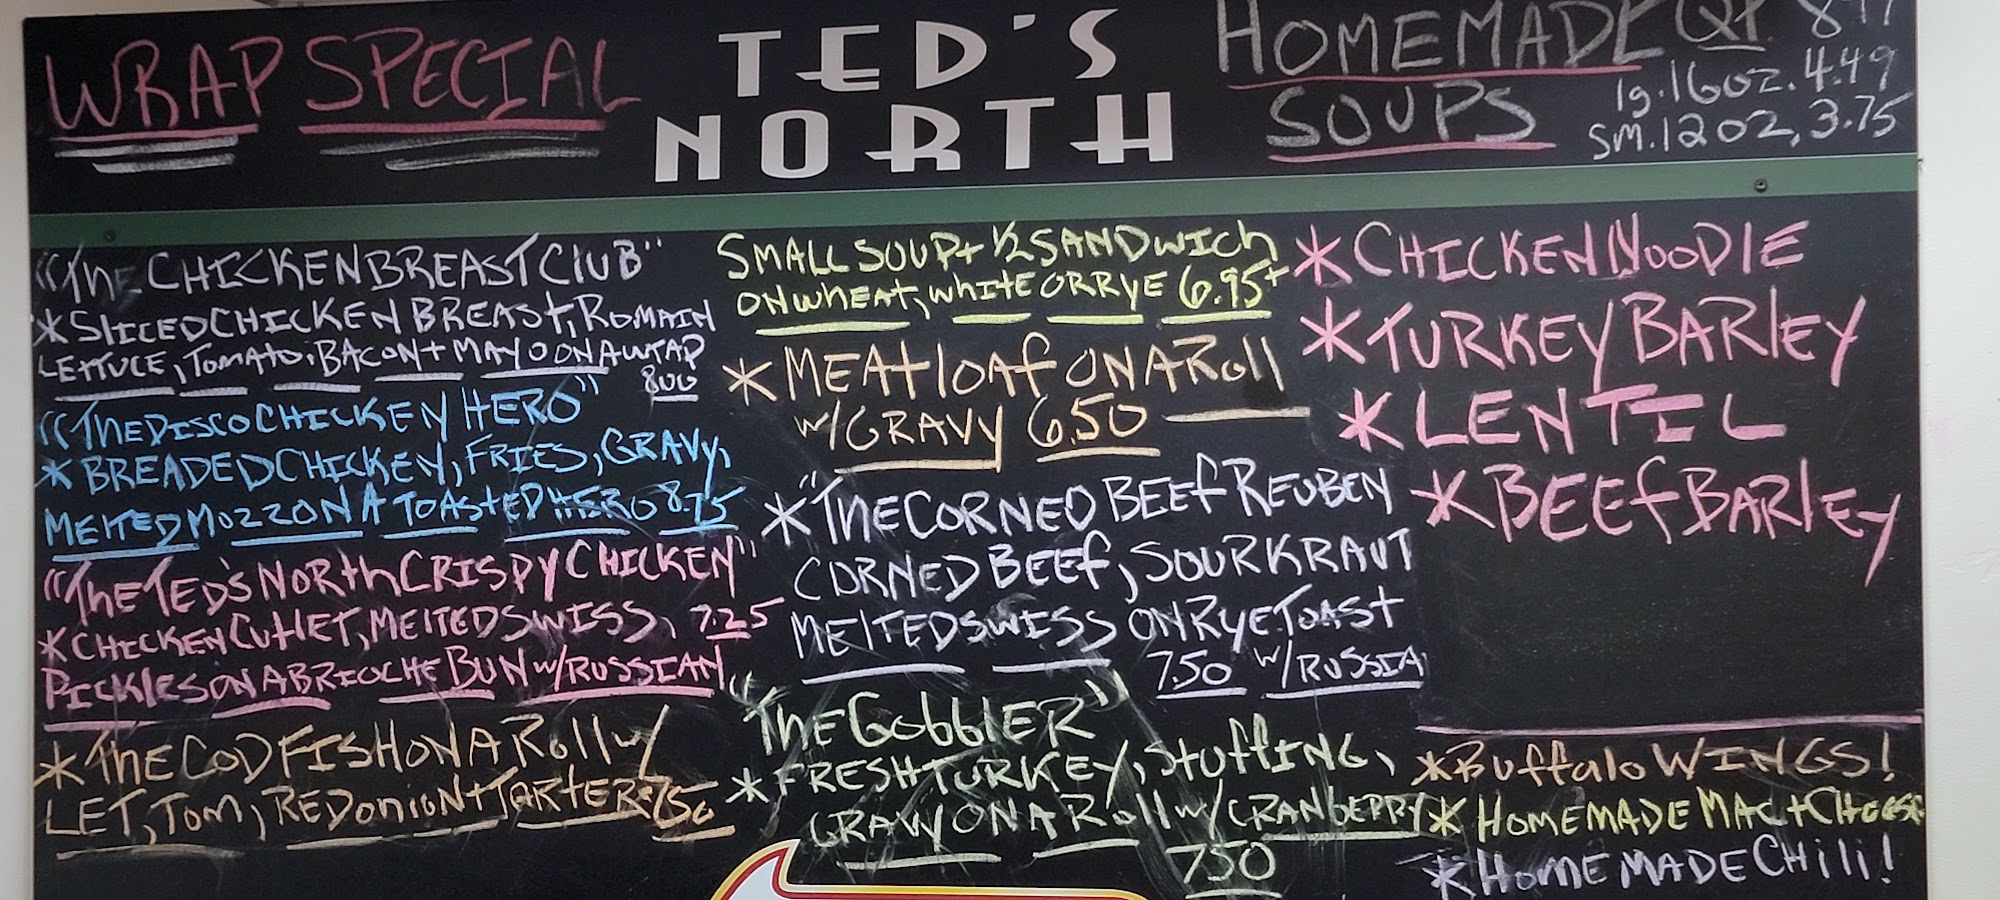 WRAP SPECIAL
TED'S
NORTH
HOMEMADE
SOUPS
QT.
lg. 16oz. 4.49
SM. 12OZ, 3.75
"THE CHICKEN BREAST CLUB"
*SLICED CHICKEN BREAST, ROMAIN
LETTUCE, TOMATO, BACON + MAYO ON A WRAP
800
"THE DISCO CHICKEN HERO"
* BREADED CHICKEN, FRIES, GRAVY,
MELTED MOZZ ON A TOASTED HERO 8.75
"THE TED'S NORTH CRISPY CHICKEN"
*CHICKEN CUTLET, MELTED SWISS, 7.25
PICKLES ON A BRIOCHE BUN w/RUSSIAN
*THE COD FISH ON A ROLL w/
LET, TOM, RED ONION + TARTER 750
SMALL SOUP + 1/2 SANDWICH
ON WHEAT, WHITE OR RYE 6.95+
*MEATLOAF ON A ROLL
w/GRAVY 6.50
*"THE CORNED BEEF REUBEN
CORNED BEEF, SOURKRAUT
MELTED SWISS ON RYE TOAST
7.50 w/RUSSIA
"THE GOBBLER"
*FRESH TURKEY, STUFFING,
GRAVY ON A ROLL w/CRANBERRY
750
*CHICKEN NOODLE
*TURKEY BARLEY
*LENTIL
*BEEF BARLEY
*BUFFALO WINGS!
*HOMEMADE MAC + CHEESE
*HOMEMADE CHILI!